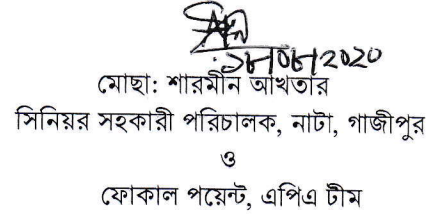 ১৮/০৮/2020
মোছা: শারমীন আখতার
সিনিয়র সহকারী পরিচালক, নাটা, গাজীপুর
ও
ফোকাল পয়েন্ট, এপিএ টীম